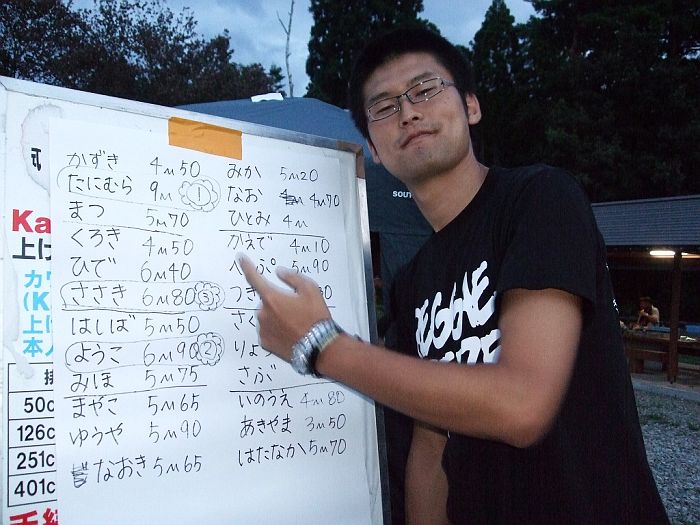 かずき 4M50
たにむら 9M ①
まつ 5M70
くろき 4M50
ひで 6M40
ささき 6M80 ③
はしば 5M50
ようこ 6M90 ②
みほ 5M75
まやこ 5M65
ゆうや 5M90
なおき 5M65
みか 5M20
なお 4M70
ひとみ 4M
かえで 4M10
5M90
つき
さく
りょう
さぶ
いのうえ 4M80
あきやま 3M50
はたなか 5M70
Ka
上げ
カワ
(K
上げ
本人
排
50c
126c
251c
401c
手続
SOUT
REGGAE